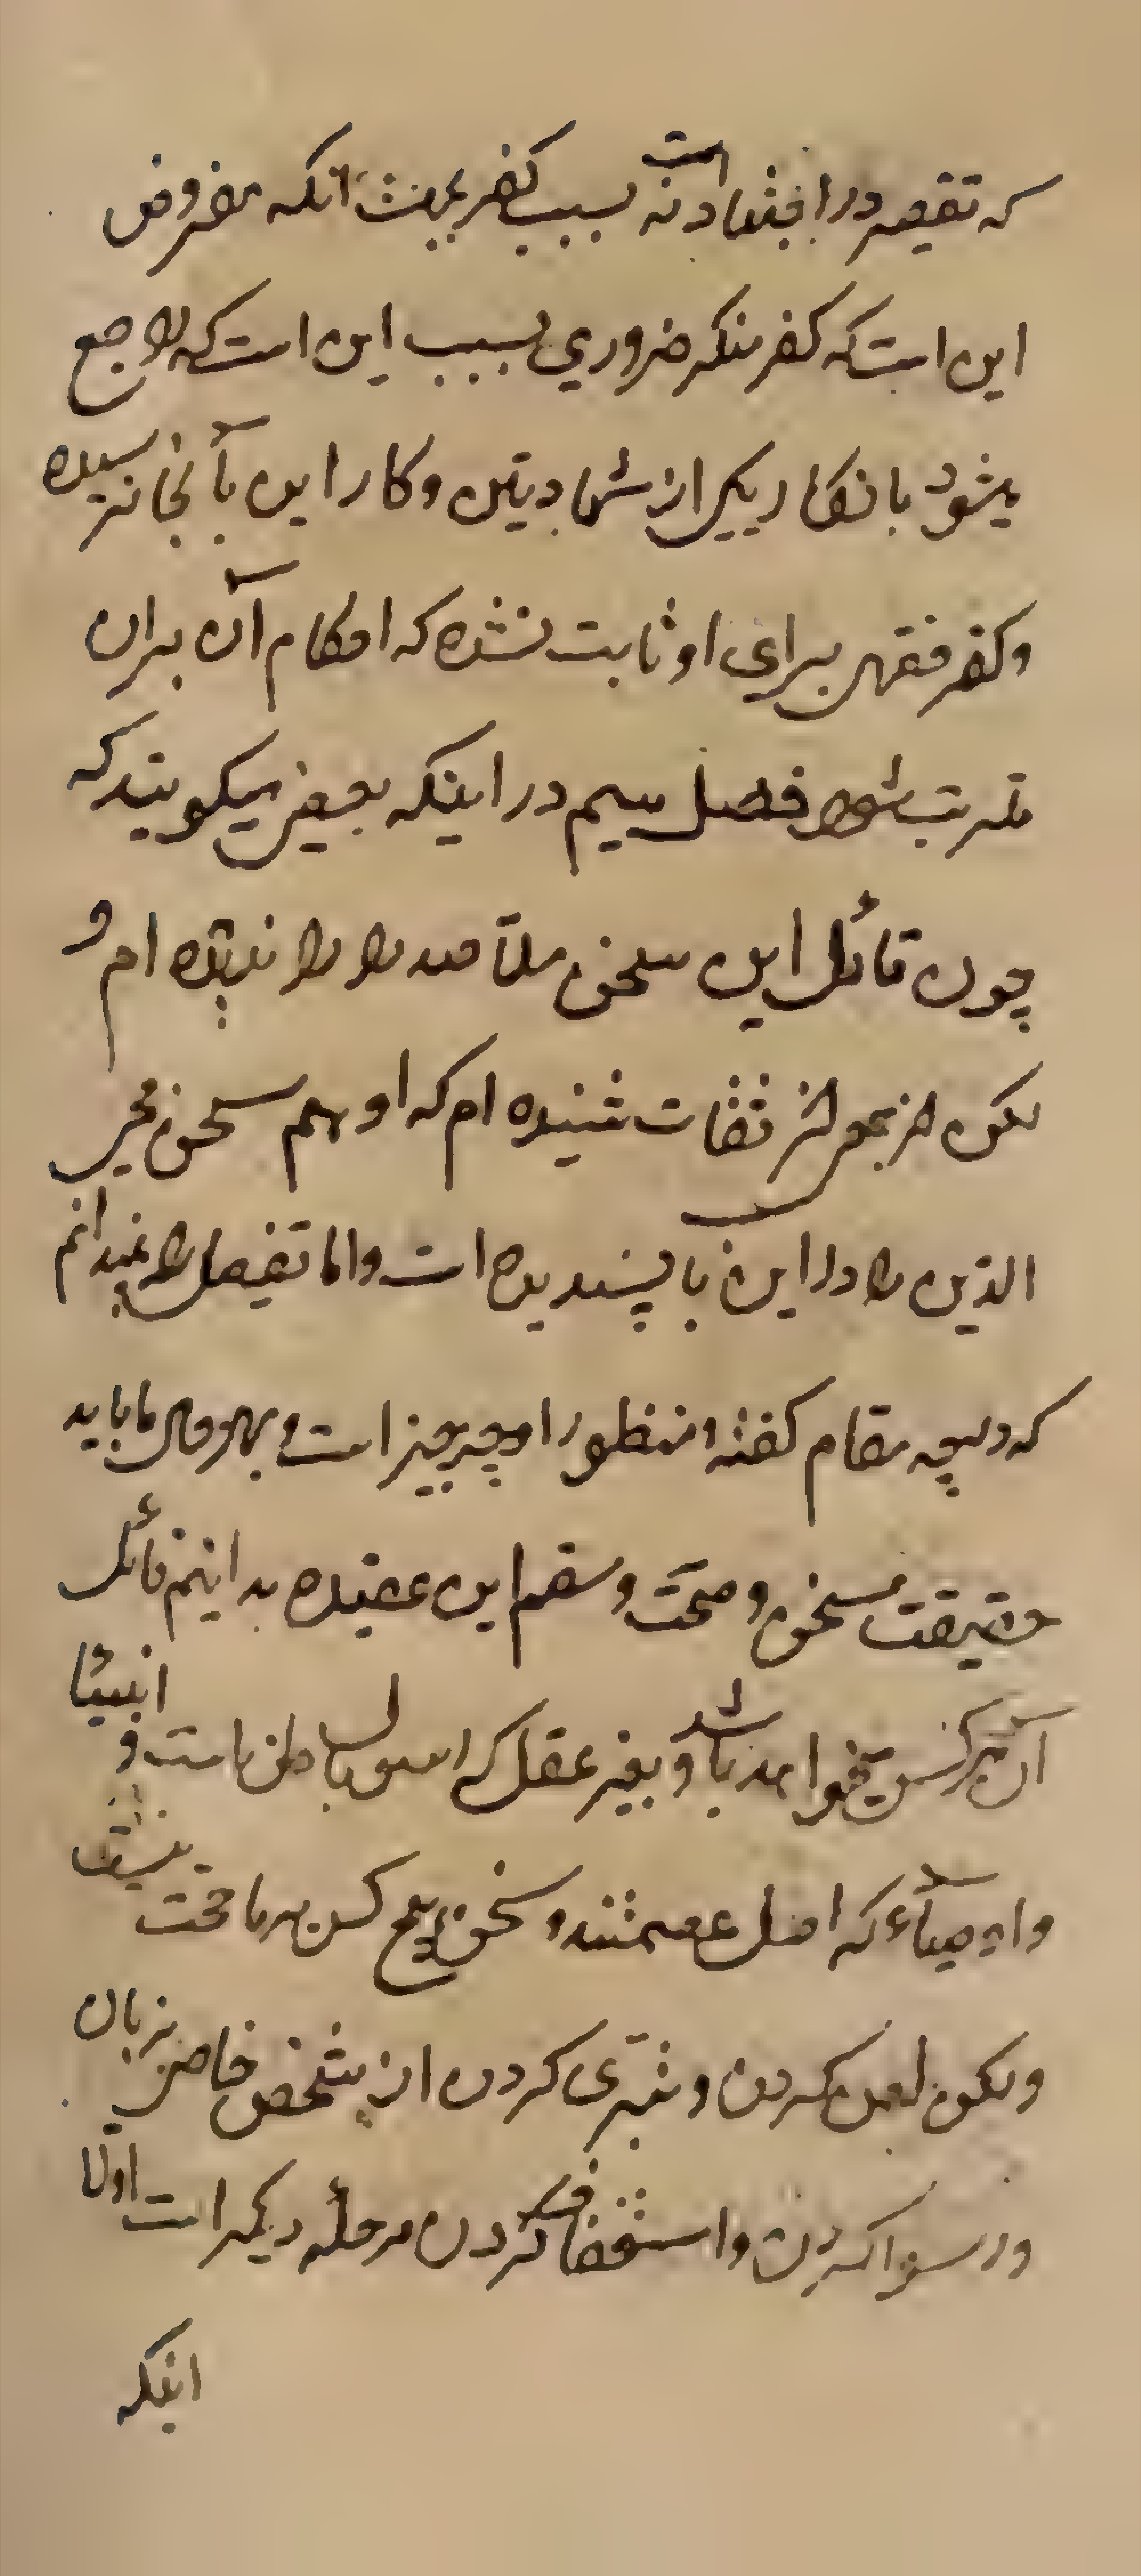 که تقصیر در اجتهاد است نه سبب کفر بجهت آنکه مفروض
این است که کفر منکر ضروری بسبب این است که راجع
میشود بانکار یکی از شهادتین و کار این بآنجا نرسیده
و کفر فقهی برای او ثابت نشده که احکام آن بران
مترتب شود فصل سیم در اینکه بعضی میگویند که
چون قائل این سخن ملا صدرا را ندیده ام و
لکن از بعض از ثقات شنیده ام که او هم سخن محیی
الدین را در این باب پسندیده است و اما تفصیل را نمیدانم
که در چه مقام گفته و منظور او چه چیز است و بهر حال ما باید
حقیقت سخن و صحت و سقم این عقیده بدانیم قائل
آن هر کس میخواهد باشد و بغیر عقل که رسول باطن است و انبیاء
و اوصیاء که اهل عصمتند و سخن هیچ کس بر ما حجت نیست
و لکن لعن کردن و تبری کردن از شخص خاص بزبان
و رسوا کردن و استخفاف کردن مرحله دیگر است اولا
اینکه